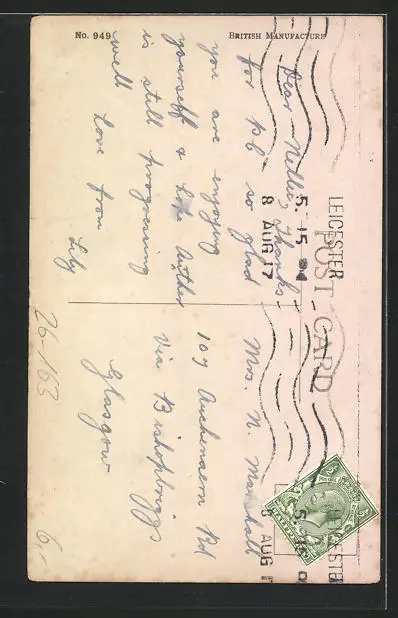 No. 949
BRITISH MANUFACTURE
POST CARD
LEICESTER
5. 15
8 AUG 17
Dear Nellie, Thanks
for P.C. so glad
you are enjoying
yourself &
is still progressing
well
Love from
Lily
Mrs. N. Marshall
107 Auchenairn Rd
Via Bishopbriggs
Glasgow
LEICESTE
5. 15
8 AUG 1
26-163
6,-